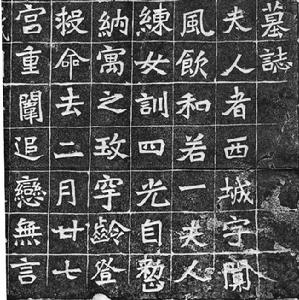 墓誌
夫人者西城宇聞
風飲和若一夫人
練女訓四光自懃
納寓之玫齡登
命去二月廿七
宮重闈追戀無言